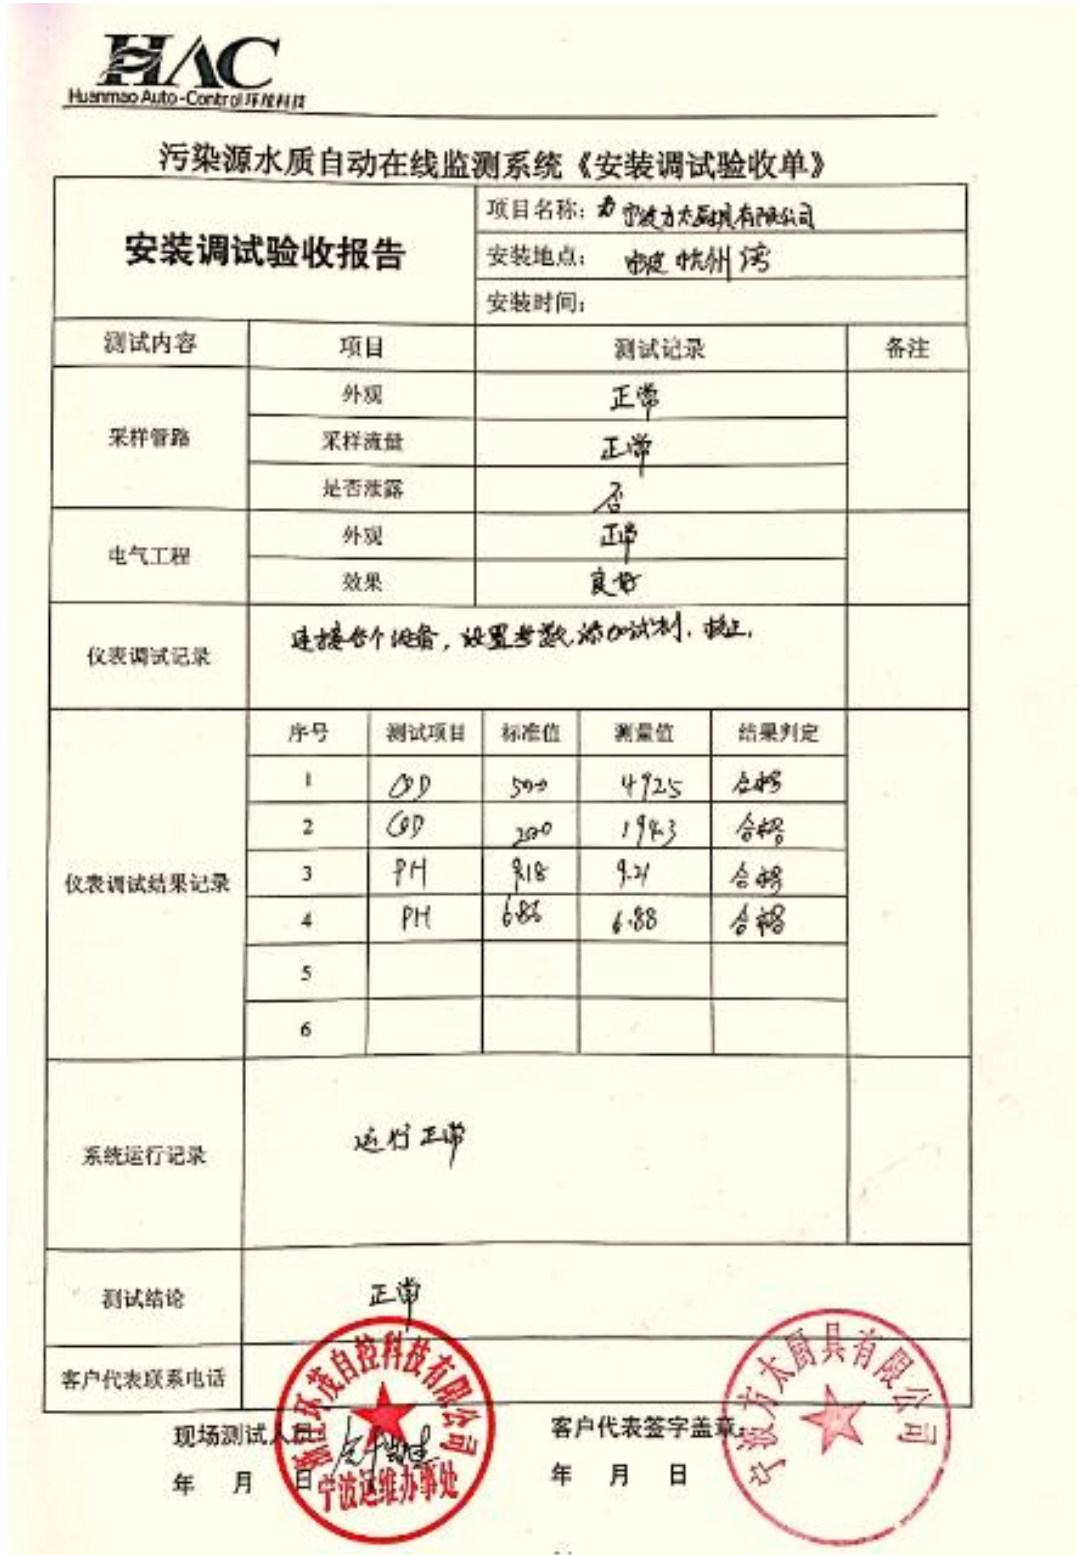 HAC
Huanmao Auto-Control 环茂科技
污染源水质自动在线监测系统《安装调试验收单》
安装调试验收报告
项目名称: 宁波方太厨具有限公司
安装地点: 宁波 杭州湾
安装时间:
测试内容 项目 测试记录 备注
采样管路 外观 正常
采样流量 正常
是否泄露 否
电气工程 外观 正常
效果 良好
仪表调试记录 连接各个设备,设置参数,添加试剂,校正.
仪表调试结果记录
序号 测试项目 标准值 测量值 结果判定
1 COD 500 492.5 合格
2 COD 200 194.3 合格
3 PH 9.18 9.21 合格
4 PH 6.86 6.88 合格
5
6
系统运行记录 运行正常
测试结论 正常
客户代表联系电话
现场测试人员 客户代表签字盖章:
年 月 日 年 月 日
浙江环茂自控科技有限公司
宁波运维办事处
宁波方太厨具有限公司